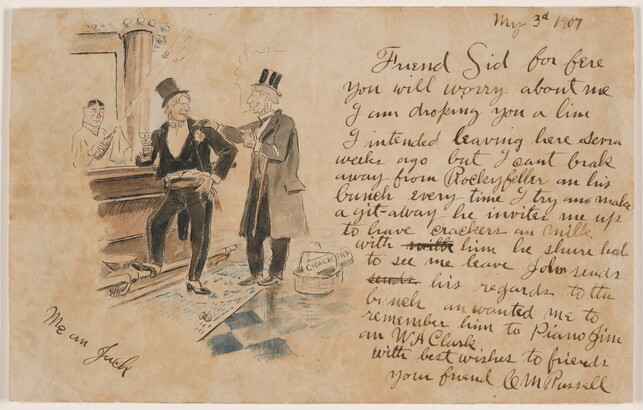 May 3d 1907
Friend Sid for fere
you will worry about me
I am droping you a line
I intended leaving here sevra
weeks ago but I cant brak
away from Rockyfeller an his
bunch every time I try an make
a git-away he invites me up
to have crackers an milk
with with him he shure hats
to see me leave John sends
sends his regards to the
bunch an wanted me to
remember him to Piano Jim
an W A Clark
with best wishes to friends
your friend C M Russell
CRACKERS
Me an Jack